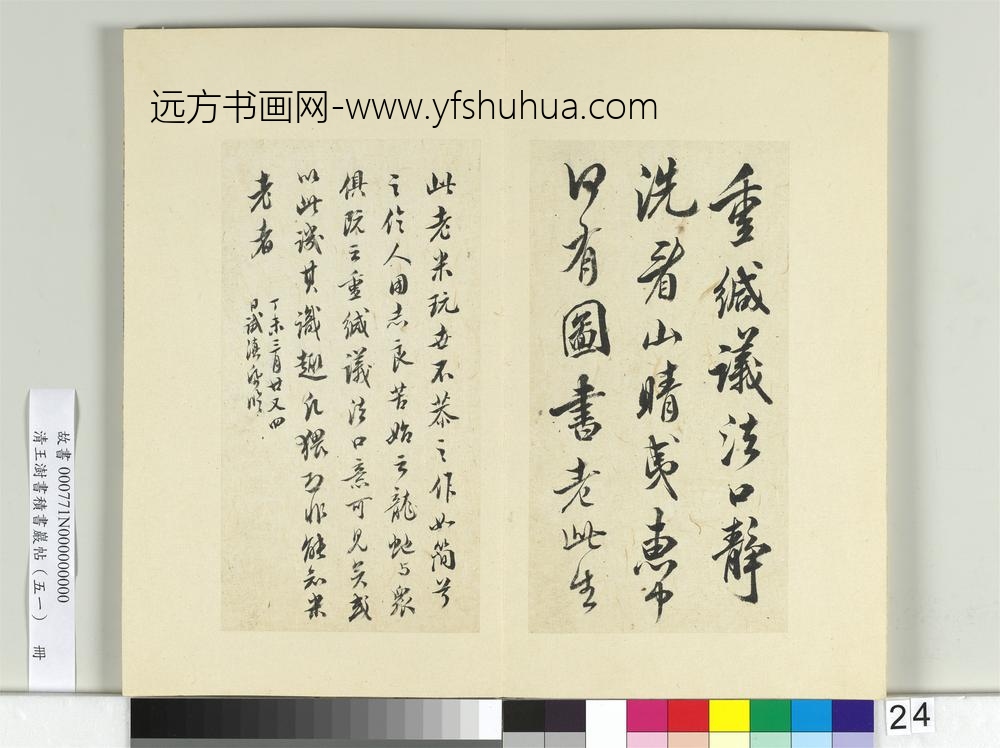 远方书画网-www.yfshuhua.com
重缄議法口靜
洗看山晴夷惠中
何有圖書老此生
此老米玩世不恭之作如簡兮
之伶人用志良苦始云龍蛇与众
俱既云重缄議法口意可见矣或
以此议其識趣凡猥乃非能知米
老者
丁未三月廿又四
日试滇
故書 000771N000000000
清王澍書積書巖帖（五一） 冊
24